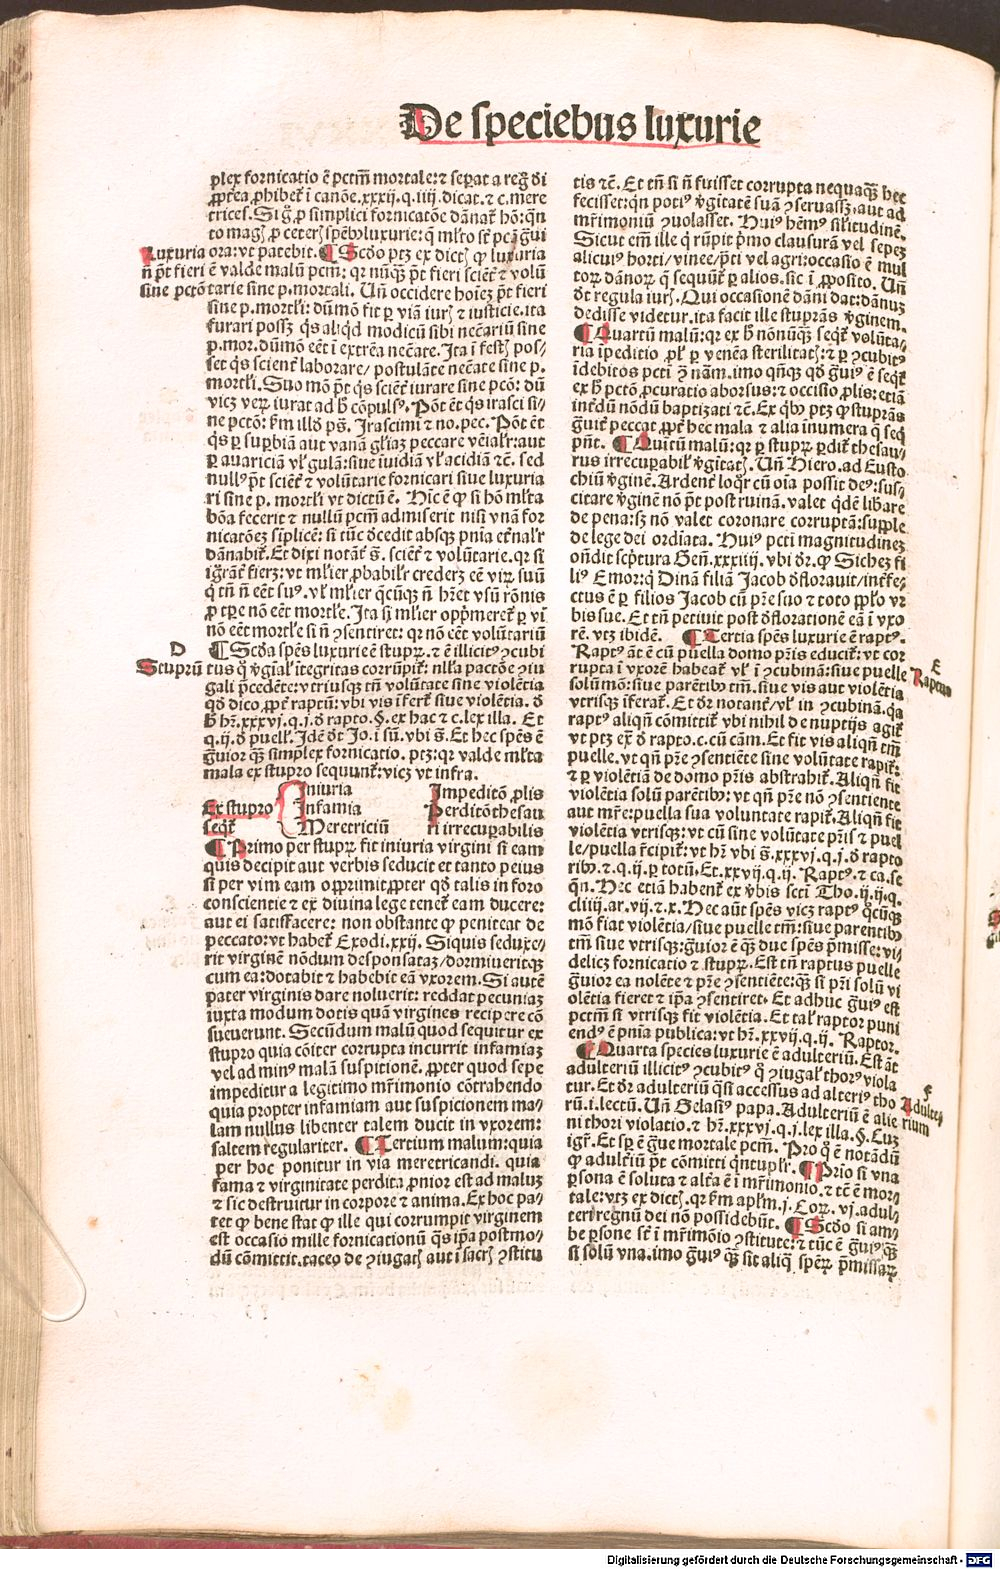 De speciebus luxurie
plex fornicatio ē pctm̄ mortale: ⁊ seꝑat a regͦ di
ꝓpͭea ꝓhibet᷑ ī canōe. xxxij. q. iiij. dicat. ⁊ c. mere
trices. Si gͦ ꝓ simplici fornicatōe dānat᷑ hō: qn̄
Luxuria
n̄ pōt fieri
sine pctō
ora: vt patebit. ¶ Scd̓o ptꝫ ex dictꝭ ꝙ luxuria
ē valde malū pcm̄: qꝛ nūqꝫ pōt fieri sciēt᷑ ⁊ volū
tarie sine p. mortali. Un̄ occidere hoīeꝫ pōt fieri
sine p. mortli: dūmō fit ꝑ viā iurꝭ ⁊ iusticie. ita
furari possꝫ qͥs aliqͥd modicū sibi necͣriū sine
p. mor. dūmō eēt ī extrēa necͣte. Ita ī festꝭ pos/
set qͥs scient᷑ laborare/ postulāte necͣte sine p.
mortli. Suo mō pōt qͥs sciēt᷑ iurare sine pctō: dū
ne pctō: ẜm illd̓ ps̄. Irascimī ⁊ no. pec. Pōt ēt
qͥs ꝑ suꝑbiā aut vanā gl̓iaꝫ peccare vēialr̄: aut
ꝑ auariciā vl̓ gulā: siue īuidiā vl̓ acidiā ⁊c. sed
nullꝰ pōt sciēt᷑ ⁊ volūtarie fornicari siue luxuria
ri sine p. mortli vt dictū ē. Hīc ē ꝙ si hō ml̓ta
bōa fecerit ⁊ nullū pcm̄ admiserit nisi vnā for
nicatōeꝫ sīplicē: si tūc d̓cedit absqꝫ pn̄ia et̓nalr̄
dānabit᷑. Et dixi notāt᷑ s̄. sciēt᷑ ⁊ volūtarie. qꝛ si
nō eēt mortl̓e si n̄ ꝯsentiret: qꝛ nō eēt volūtariū
D
Stuprū
¶ Scd̓a spēs luxurie ē stupꝝ. ⁊ ē illicitꝰ ꝯcubi
tus qͦ v̓ginalͥ ītegritas corrūpit᷑: nl̓la pactōe ꝯiu
gali p̄cedēte: vtriusqꝫ tn̄ volūtate sine violētia
qd̓ dico, ꝓpt᷑ raptū: vbi vis īfert᷑ siue violētia. d̓
h̓ hr̄. xxxvj. q. j. d̓ rapto. §. ex hac ⁊ c. lex illa. Et
gͣuior qͣꝫ simplex fornicatio. ptꝫ: qꝛ valde ml̓ta
mala ex stupro sequunt᷑: vicꝫ vt infra.
Ex stupro
seqͥt᷑
Iniuria
Infamia
Meretriciū
Impeditō ꝓlis
Perditō thesau
ri irrecuꝑabilis
¶ Primo per stupꝝ fit iniuria virgini si eam
quis decipit aut verbis seducit et tanto peius
si per vim eam opprimit, ꝓpter qd̓ talis in foro
conscientie ⁊ ex divina lege tenet᷑ eam ducere:
aut ei satisfacere: non obstante ꝙ peniteat de
peccato: vt habet᷑ Exodi. xxij. Siquis seduxe/
rit virginē nōdum desponsataꝫ/dormiueritqꝫ
cum ea: dotabit ⁊ habebit eā vxorem. Si autē
pater virginis dare noluerit: reddat pecuniaꝫ
iuxta modum dotis quā virgines recipere cō
sueuerunt. Secūdum malū quod sequitur ex
stupro quia cōiter corrupta incurrit infamiaꝫ
vel ad minꝰ malā suspitionē. ꝓpter quod sepe
impeditur a legitimo mr̄imonio cōtrahendo
quia propter infamiam aut suspicionem ma/
lam nullus libenter talem ducit in vxorem:
saltem regulariter. ¶ Tertium malum: quia
per hoc ponitur in via meretricandi. quia
fama ⁊ virginitate perdita ꝓnior est ad maluꝫ
⁊ sic destruitur in corpore ⁊ anima. Ex hoc pa/
tet ꝙ bene stat ꝙ ille qui corrumpit virginem
est occasio mille fornicationū qͣs ip̄a postmo/
dū cōmittit. taceo de ꝯiugatꝭ aut ī sacrꝭ ꝯstitu
tis ⁊c. Et tn̄ si n̄ fuisset corrupta nequaqͣꝫ hec
fecisset: qn̄ potiꝰ v̓gitatē suā ꝯseruassꝫ: aut ad
mr̄imoniū ꝯuolasset. Huiꝰ hēmꝰ sil̓itudinē.
Sicut eīm ille qͥ rūpit pͥmo clausurā vel sepeꝫ
alicuiꝰ horti/ vinee/ pͣti vel agri: occasio ē mul
toꝝ dānoꝝ qͥ sequūt᷑ ꝑ alios. sic ī ꝓposito. Un̄
d̓t regula iurꝭ. Qui occasionē dāni dat: dānuꝫ
dedisse videtur. ita facit ille stuprās v̓ginem.
¶ Quartū malū: qꝛ ex h̓ nōnūqͣꝫ seqͥt᷑ volūta/
ria īpeditio ꝓl̓ ꝑ venēa sterilitatꝭ: ⁊ ꝑ ꝯcubitꝰ
īdebitos pcti ꝯ̄ nām. imo qn̄qꝫ qd̓ gͣuiꝰ ē seqͥt᷑
ex h̓ pctō ꝓcuratio aborsus: ⁊ occisio ꝓlis: etiā
int̓dū nōdū baptizati ⁊c. Ex qͥbꝰ ptꝫ ꝙ stuprās
gͣuit̓ peccat ꝓpt᷑ hec mala ⁊ alia inumera qͥ seq
pn̄t. ¶ Quītū malū: qꝛ ꝑ stupꝝ ꝑdit᷑ thesau/
rus irrecuꝑabil̓ v̓gitatꝭ. Un̄ Hiero. ad Eusto
chiū v̓ginē. Ardent̓ loqͦr cū oīa possit deꝰ: sus/
citare v̓ginē nō pōt post ruinā. valet qͥdē lib̓are
de pena: sꝫ nō valet coronare corruptā: supple
de lege dei ordīata. Huiꝰ pcti magnitudineꝫ
on̄dit sc̓ptura Gen̄. xxxiiij. vbi d̓r. ꝙ Sichez fi
liꝰ Emor: qͥ Dinā filiā Jacob d̓florauit/ int̓fe/
ctus ē ꝑ filios Jacob cū pr̄e suo ⁊ toto pp̄lo vr
bis sue. Et tn̄ petiuit post d̓florationē eā ī vxo
rē. vtꝫ ibidē. ¶ Tertia spēs luxurie ē raptꝰ.
E
Raptus
Raptꝰ āt ē cū puella domo pr̄is educit᷑: vt cor
rupta ī vxorē habeat᷑ vl̓ ī ꝯcubinā: siue puelle
solū mō: siue parētibꝰ tm̄. siue vis aut violētia
vtrisqꝫ īferat᷑. Et d̓r notāt᷑/ vl̓ in ꝯcubinā. qꝛ
raptꝰ aliqn̄ cōmittit᷑ vbi nihil de nuptijs agit᷑
vt ptꝫ ex̄ d̓ rapto. c. cū cām. Et fit vis aliqn̄ tm̄
puelle. vt qn̄ pr̄e ꝯsentiēte sine volūtate rapit᷑:
⁊ ꝑ violētiā de domo pr̄is abstrahit᷑. Aliqn̄ fit
violētia solū parētibꝰ: vt qn̄ pr̄e nō ꝯsentiente
aut mr̄e: puella sua voluntate rapit᷑. Aliqn̄ fit
violētia vtrisqꝫ: vt cū sine volūtate pr̄is ⁊ puel
le/ puella r̄cipit᷑: vt hr̄ vbi s̄. xxxvj. q. j. d̓ rapto
ribꝰ. ⁊ q. ij. ꝑ totū. Et. xxvij. q. ij. Raptꝰ. ⁊ ca. se
qn̄. Hec etiā habent᷑ ex v̓bis scti Tho. ij. ij. q.
cliiij. ar. vij. ⁊ x. Hec aūt spēs vicꝫ raptꝰ qͦcūqꝫ
mō fiat violētia/ siue puelle tm̄: siue parentibꝰ
tm̄ siue vtrisqꝫ: gͣuior ē qͣꝫ due spēs p̄misse: vi/
delicꝫ fornicatio ⁊ stupꝝ. Est tn̄ raptus puelle
gͣuior ea nolēte ⁊ pr̄e ꝯsentiēte: qͣꝫ si pr̄i solū vi
olētia fieret ⁊ ip̄a ꝯsentiret. Et adhuc gͣuiꝰ est
pctm̄ si vtrisqꝫ fit violētia. Et tal̓ raptor puni
endꝰ ē pn̄ia publica: vt hr̄. xxvij. q. ij. Raptor.
¶ Quarta species luxurie ē adulteriū. Est āt
adulteriū illicitꝰ ꝯcubitꝰ qͦ ꝯiugal̓ thorꝰ viola
F
Adulte/
rium
tur. Et d̓r adulteriū qͣsi accessus ad alteriꝰ tho
rū. i. lectū. Un̄ Gelasiꝰ papa. Adulteriū ē alie
ni thori violatio. ⁊ hr̄. xxxvj. q. j. lex illa. §. Cuꝫ
igr̄. Et sꝑ ē gͣue mortale pcm̄. Pro qͦ ē notādū
ꝙ adult̓iū pōt cōmitti qͥntuplr̄. ¶ Prīo si vna
ꝑsona ē soluta ⁊ alt̓a ē ī mr̄imonio. ⁊ tc̄ ē mor/
tale: vtꝫ ex dictꝭ. qꝛ ẜm apl̓m. j. Coꝝ. vj. adul/
teri regnū dei nō possidebūt. ¶ Scd̓o si am/
be ꝑsone st̄ ī mr̄imōio ꝯstitute: ⁊ tūc ē gͣuiꝰ qͣꝫ
si solū vna. imo gͣuiꝰ qͣꝫ sit aliqͣ spēꝝ p̄missaꝝ
Digitalisierung gefördert durch die Deutsche Forschungsgemeinschaft - DFG